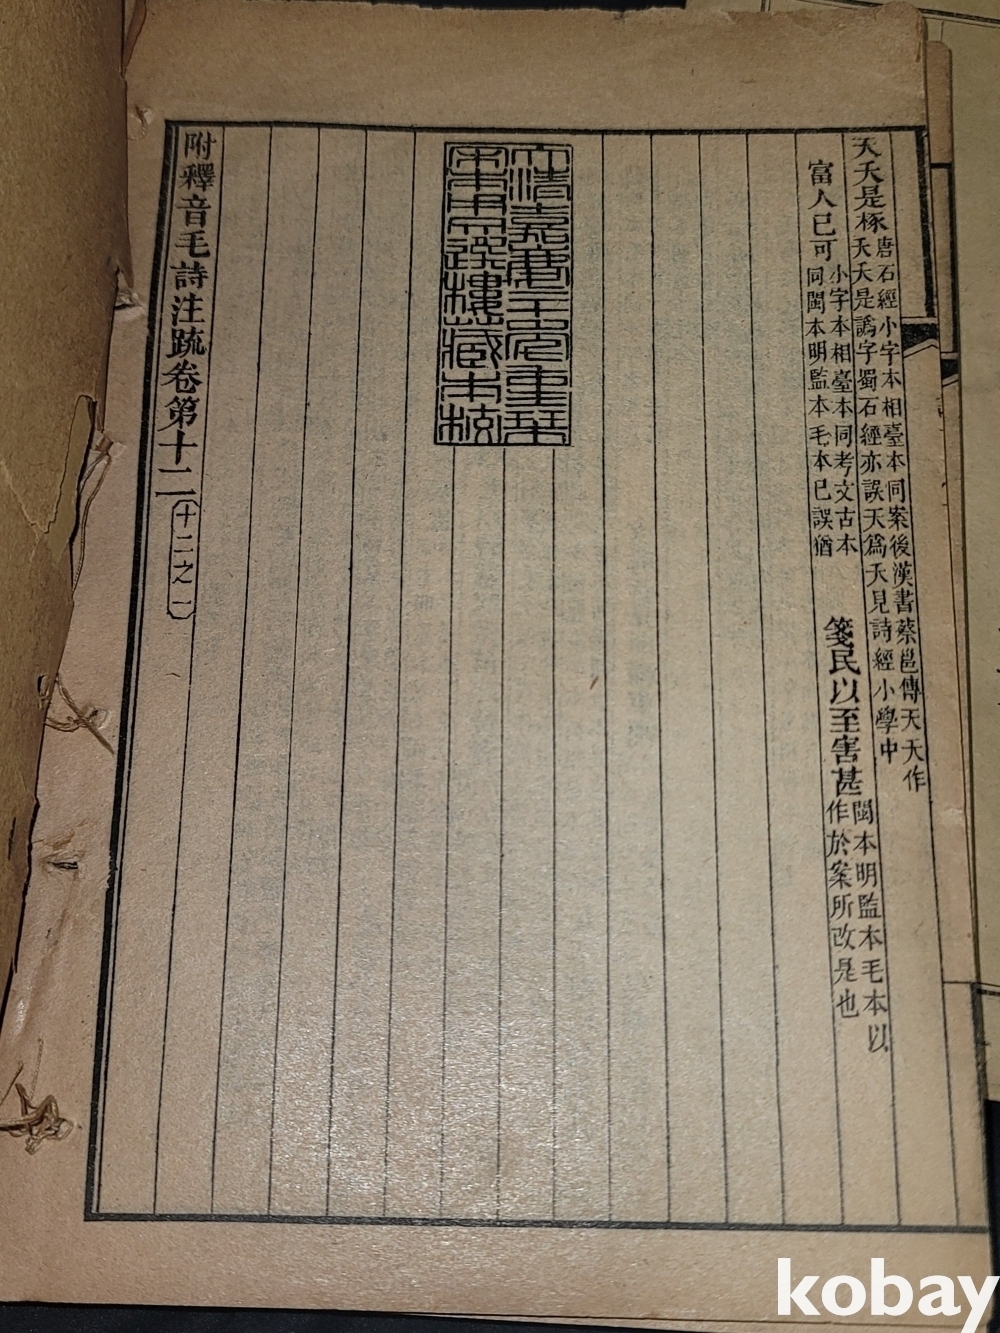 天夭是椓
唐石經小字本相臺本同案後漢書蔡邕傳天夭作
夭夭是譌字蜀石經亦誤天爲夭見詩經小學中
富人已可
小字本相臺本同考文古本
同閩本明監本毛本已誤猶
箋民以至害甚
閩本明監本毛本以
作於案所改是也
大清嘉慶二十年重栞
宋本用文選樓藏本校
附釋音毛詩注疏卷第十二
十二之一
kobay